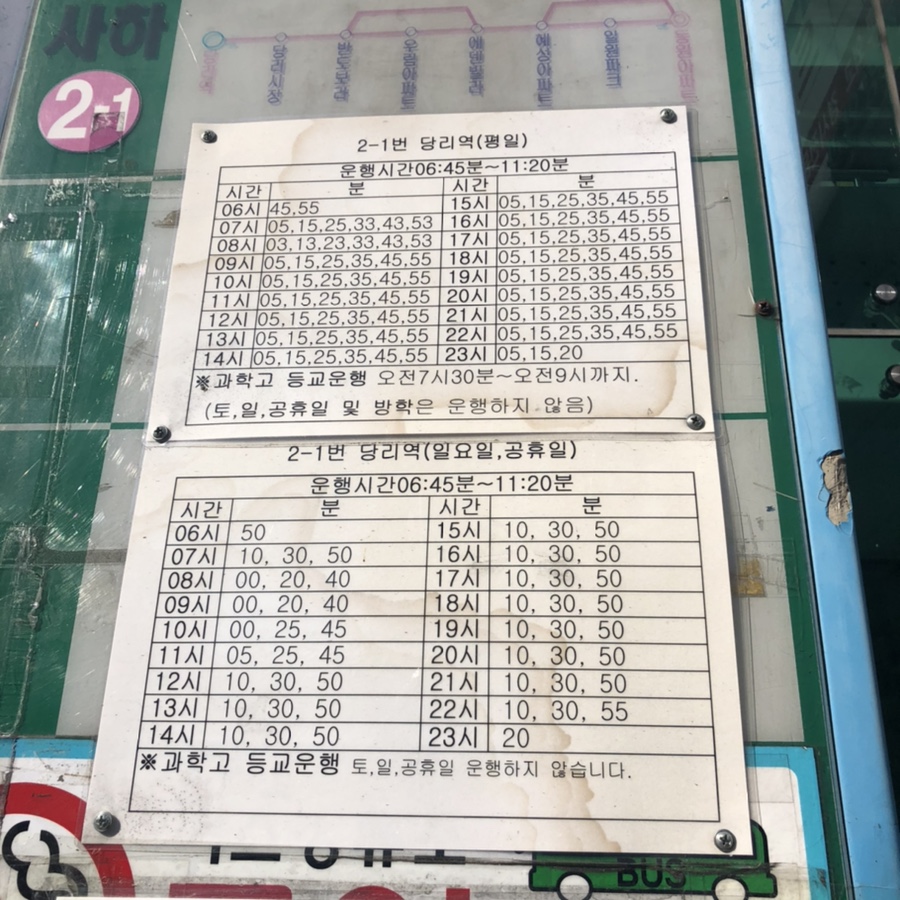 사하
2-1
2-1번 당리역(평일)
운행시간06:45분~11:20분
시간 분 시간 분
06시 45.55 15시 05,15,25,35,45,55
07시 05.15.25,33,43,53 16시 05,15,25,35,45,55
08시 03,13,23,33,43,53 17시 05,15,25,35,45,55
09시 05,15,25,35,45,55 18시 05,15,25,35,45,55
10시 05,15,25,35,45,55 19시 05,15,25,35,45,55
11시 05,15,25,35,45,55 20시 05,15,25,35,45,55
12시 05,15,25,35,45,55 21시 05,15,25,35,45,55
13시 05,15,25,35,45,55 22시 05,15,25,35,45,55
14시 05,15,25,35,45,55 23시 05,15,20
※과학고 등교운행 오전7시30분~오전9시까지.
(토,일,공휴일 및 방학은 운행하지 않음)
2-1번 당리역(일요일,공휴일)
운행시간06:45분~11:20분
시간 분 시간 분
06시 50 15시 10, 30, 50
07시 10, 30, 50 16시 10, 30, 50
08시 00, 20, 40 17시 10, 30, 50
09시 00, 20, 40 18시 10, 30, 50
10시 00, 25, 45 19시 10, 30, 50
11시 05, 25, 45 20시 10, 30, 50
12시 10, 30, 50 21시 10, 30, 50
13시 10, 30, 50 22시 10, 30, 55
14시 10, 30, 50 23시 20
※과학고 등교운행 토,일,공휴일 운행하지 않습니다.
BUS